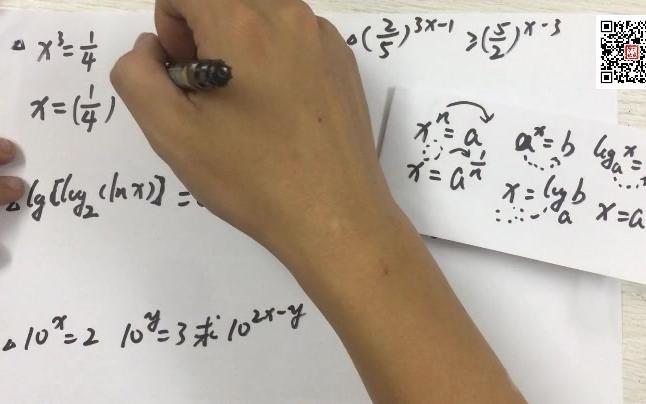 △ x³ = 1/4
x = (1/4)
△ lg[log₂(ln x)] =
△ 10^x = 2 10^y = 3 求 10^(2x-y)
△ (2/5)^(3x-1) ≥ (5/2)^(x-3)
x^n = a
x = a^(1/n)
a^x = b
x = log_a b
log_a x =
x = a